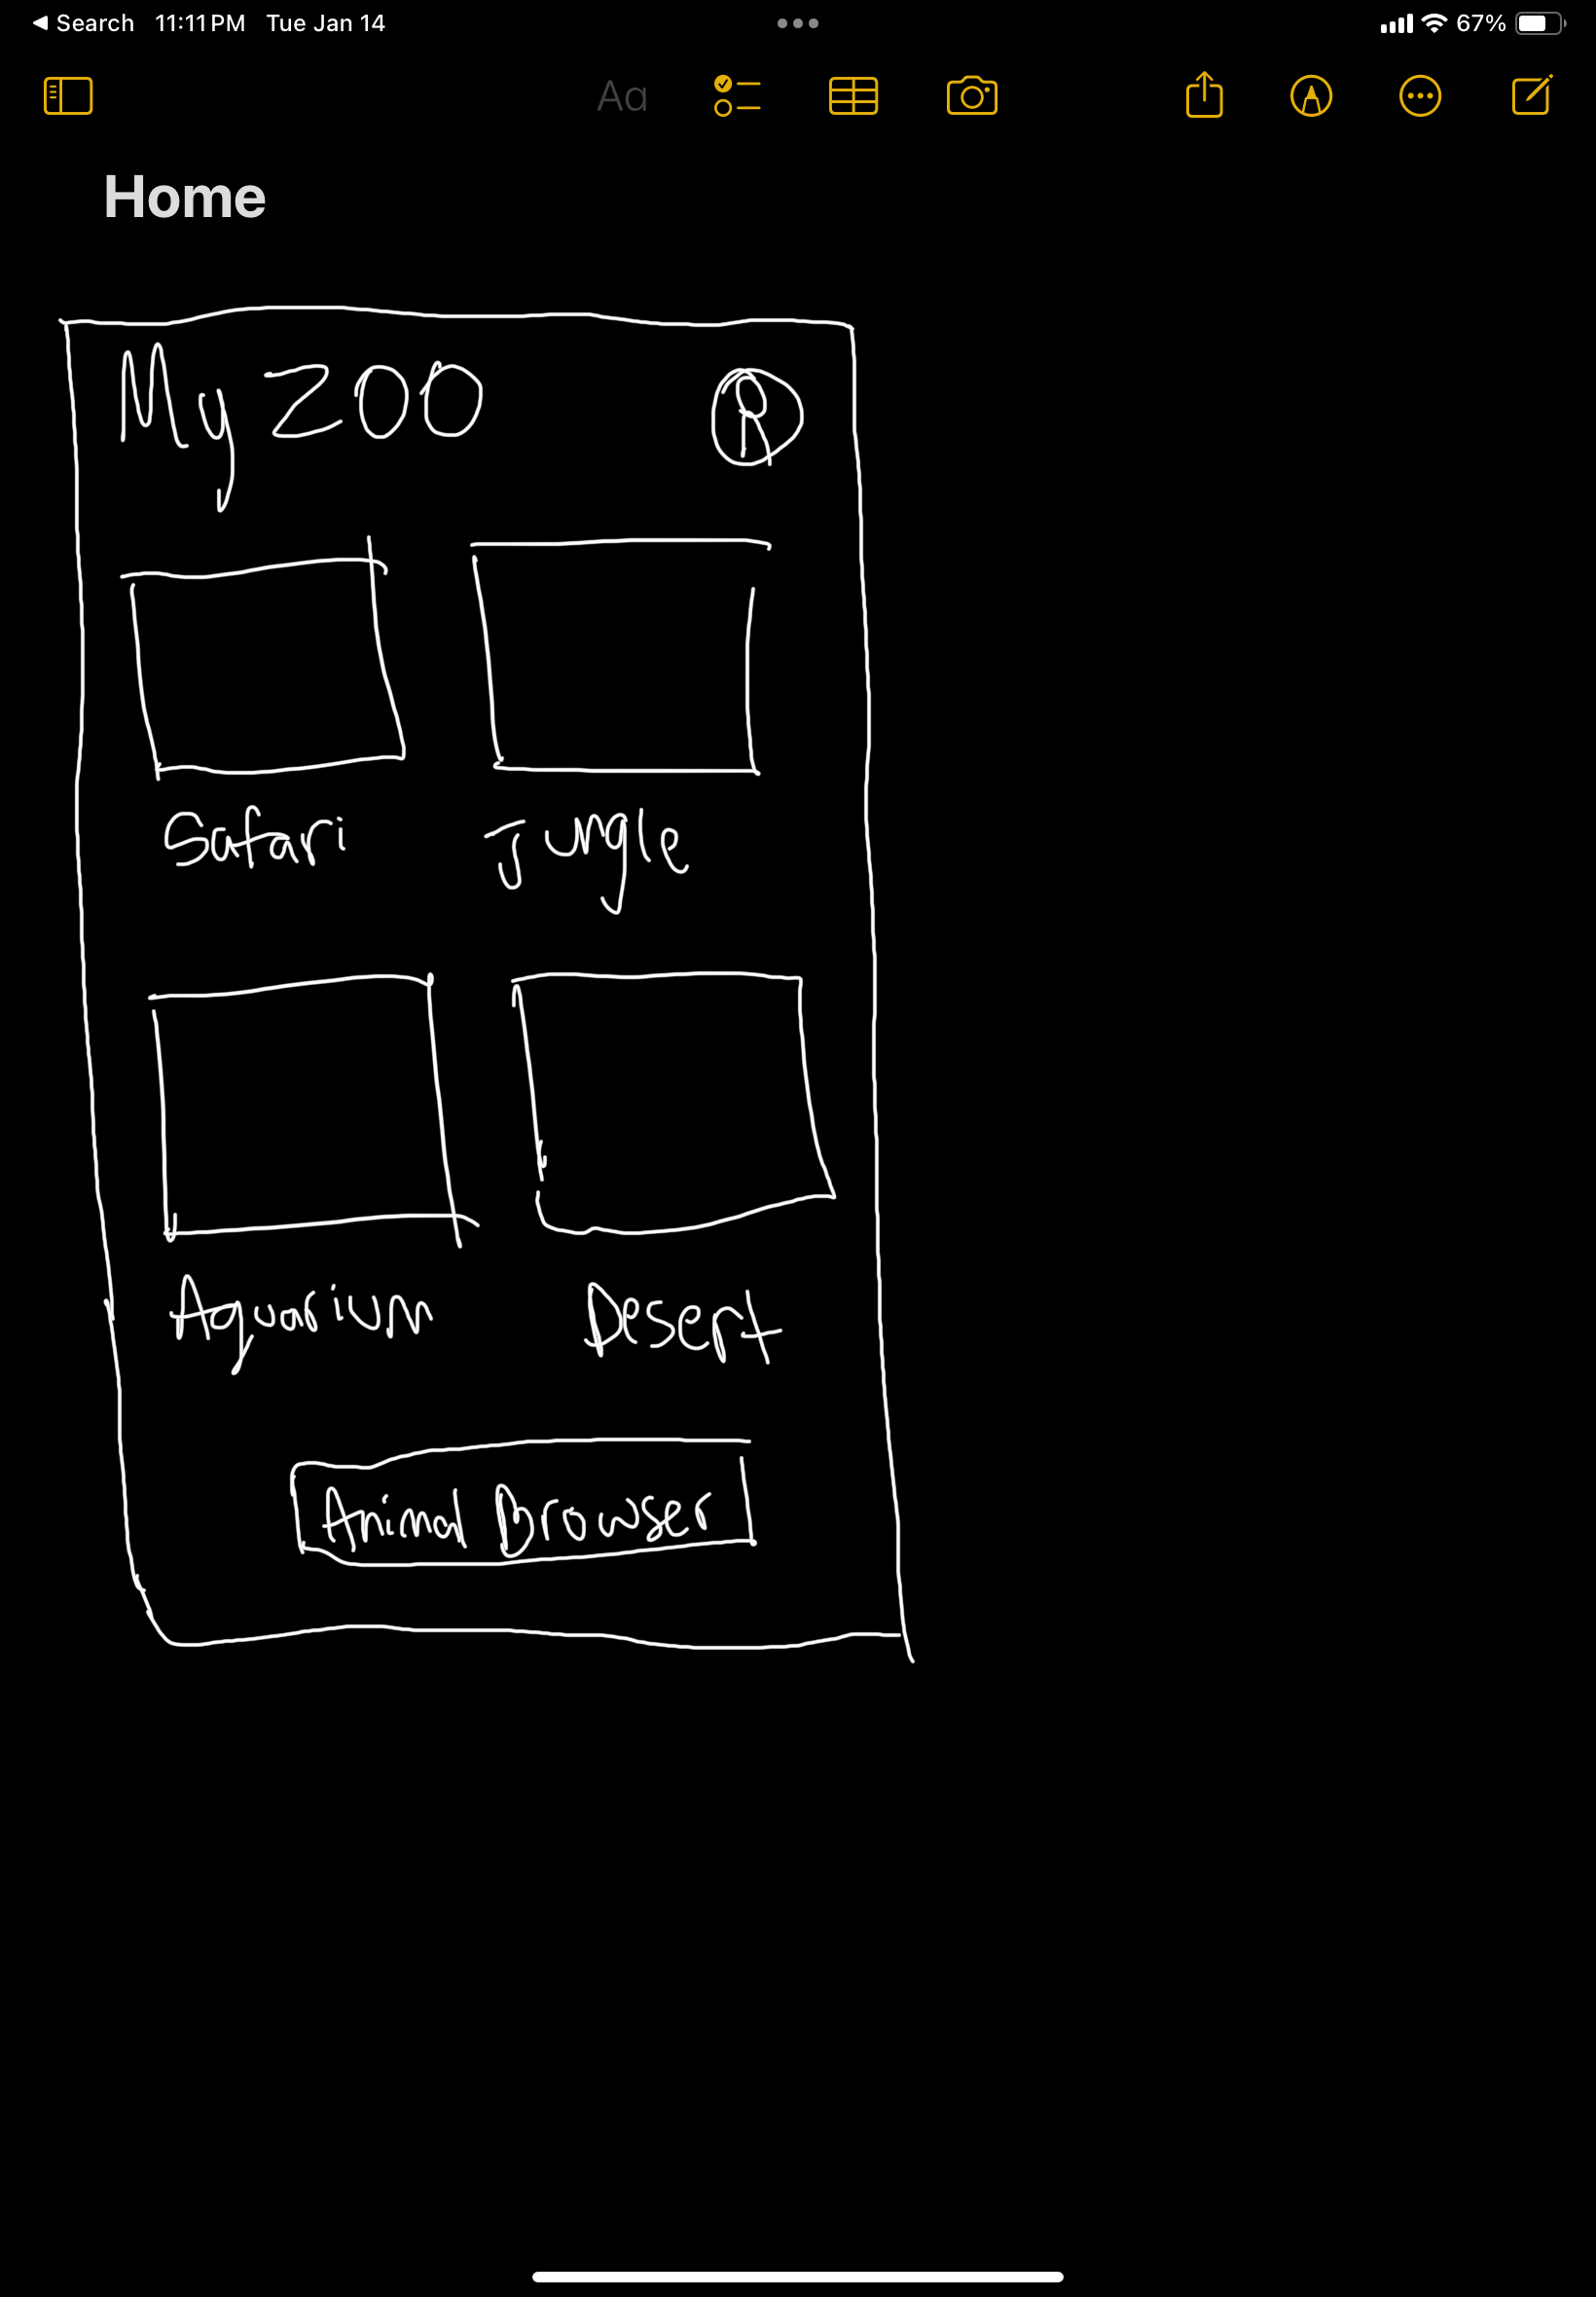 Search 11:11 PM Tue Jan 14 67%
Aa
Home
My ZOO R
Safari Jungle
Aquarium Desert
Animal Browser